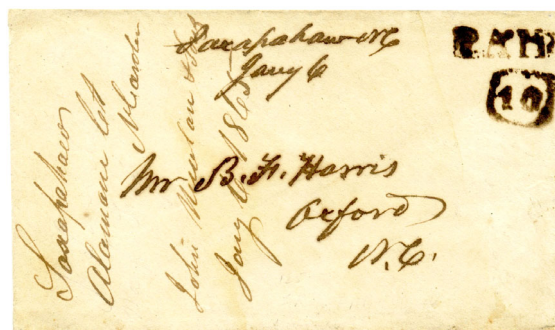 Saxapahaw NC
Jany 6
PAID
10
Mr B. F. Harris
Oxford
N.C.
Saxapahaw
Alamance
John Newlin &
Jany 6 1865